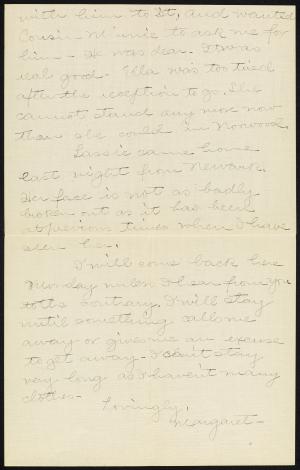 with him to it, and wanted
Cousin Minnie to ask me for
him - It was dear. It was
real good. Ella was too tired
after the reception to go. She
cannot stand any more now
than she could in Norwood.
Lassie came home
last night from Newark.
Her face is not as badly
broken out as it has been
at previous times when I have
seen her.
I will come back here
Monday unless I hear from you
to the contrary. I will stay
until something calls me
away or gives me an excuse
to get away - I can't stay
very long as I haven't many
clothes -
Lovingly,
Margaret -